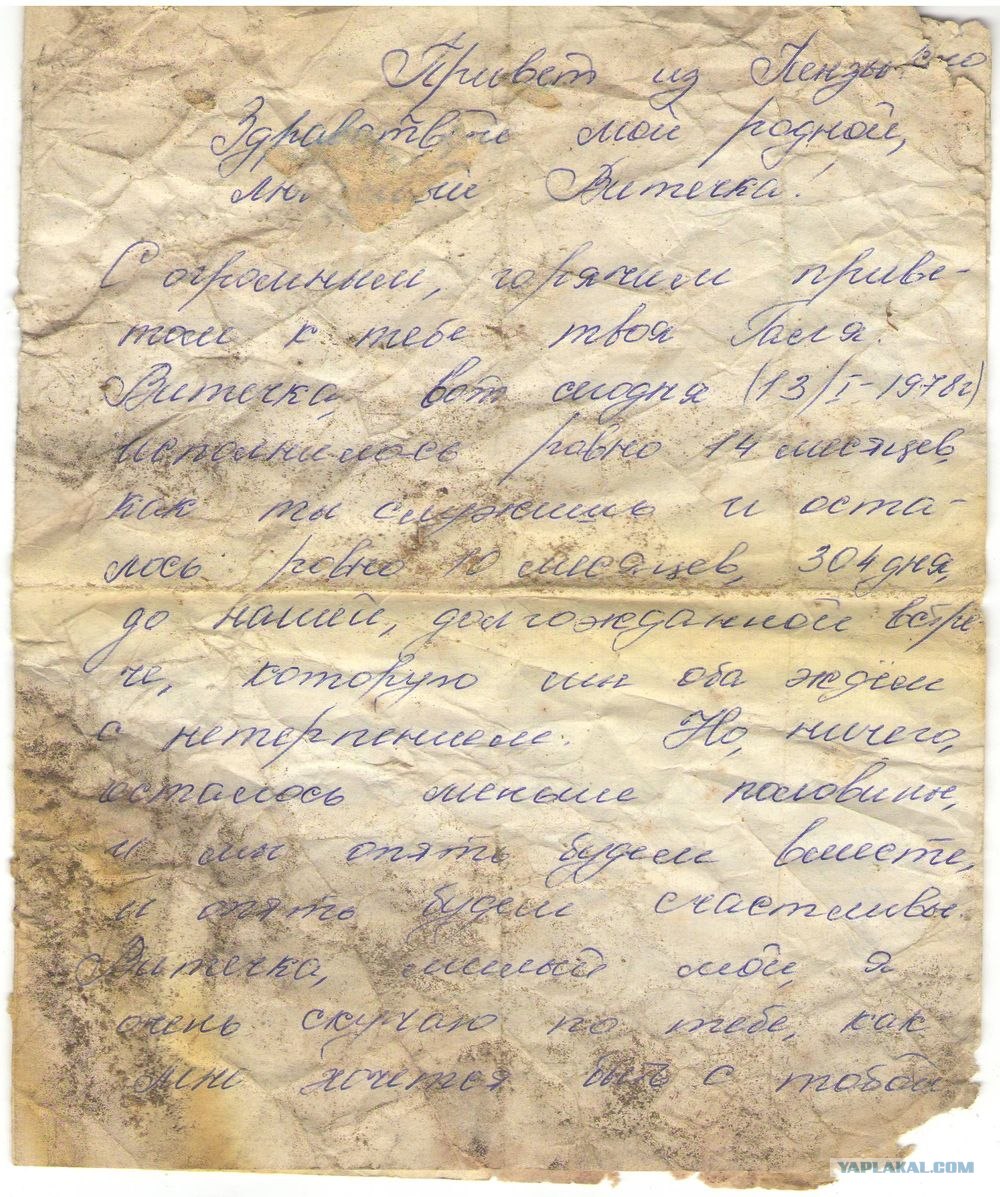 Привет из Пензы
Здравствуй мой родной,
Витечка!
С огромным, горячим приве-
том к тебе твоя Галя.
Витечка, вот сегодня (13/I-1978г)
исполнилось ровно 14 месяцев,
как ты служишь и оста-
лось ровно 10 месяцев, 304 дня,
до нашей, долгожданной встре-
че, которую мы оба ждём
с нетерпением. Но, ничего,
осталось меньше половины,
и мы опять будем вместе,
и опять будем счастливы.
Витечка, милый мой, я
очень скучаю по тебе, как
мне хочется быть с тобой
YAPLAKAL.COM